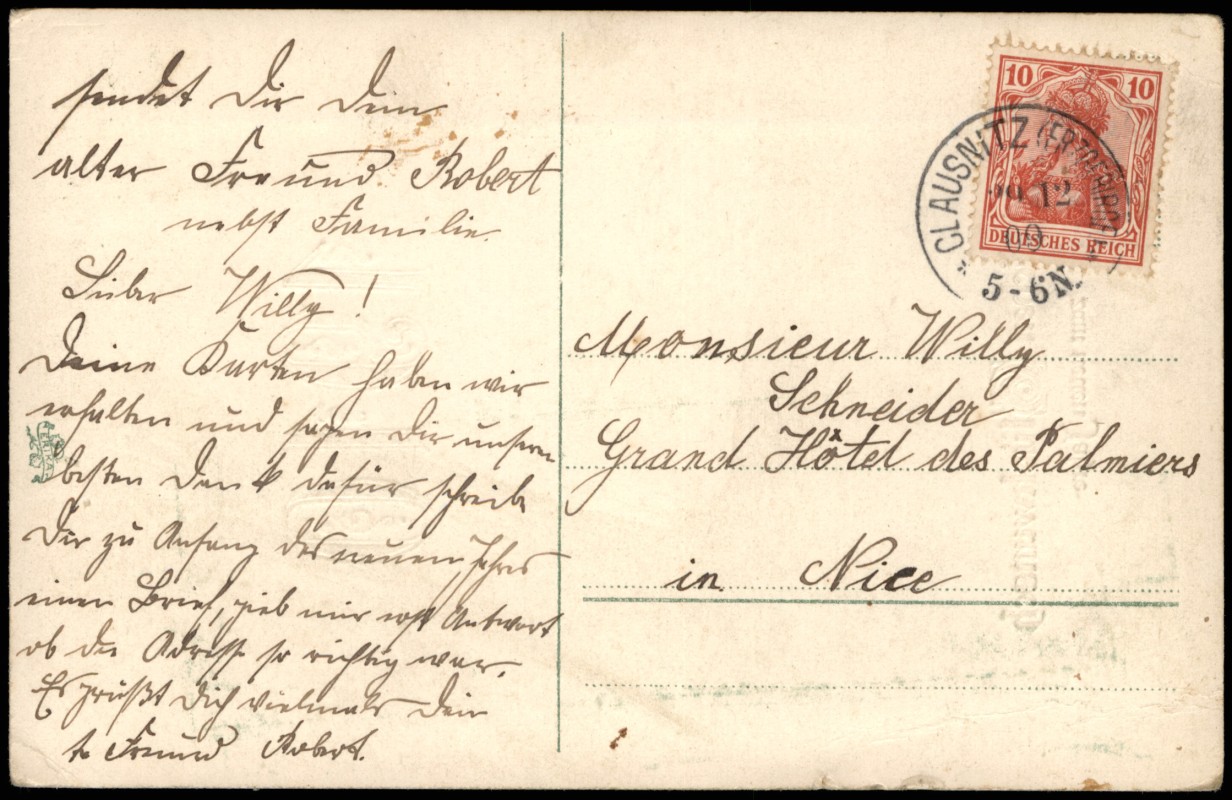 sendet Dir Dein
alter Freund Robert
nebst Familie.
Lieber Willy!
Deine Karten haben wir
erhalten und sagen Dir unseren
besten Dank dafür schreibe
Dir zu Anfang des neuen Jahres
einen Brief, gieb mir erst Antwort
ob die Adresse so richtig war.
Es grüßt Dich vielmals Dein
Freund Robert.
ERIKA
10 10
DEUTSCHES REICH
CLAUSNITZ (ERZGEBIRGE)
12
5-6N.
Monsieur Willy
Schneider
Grand Hôtel des Palmiers
in Nice